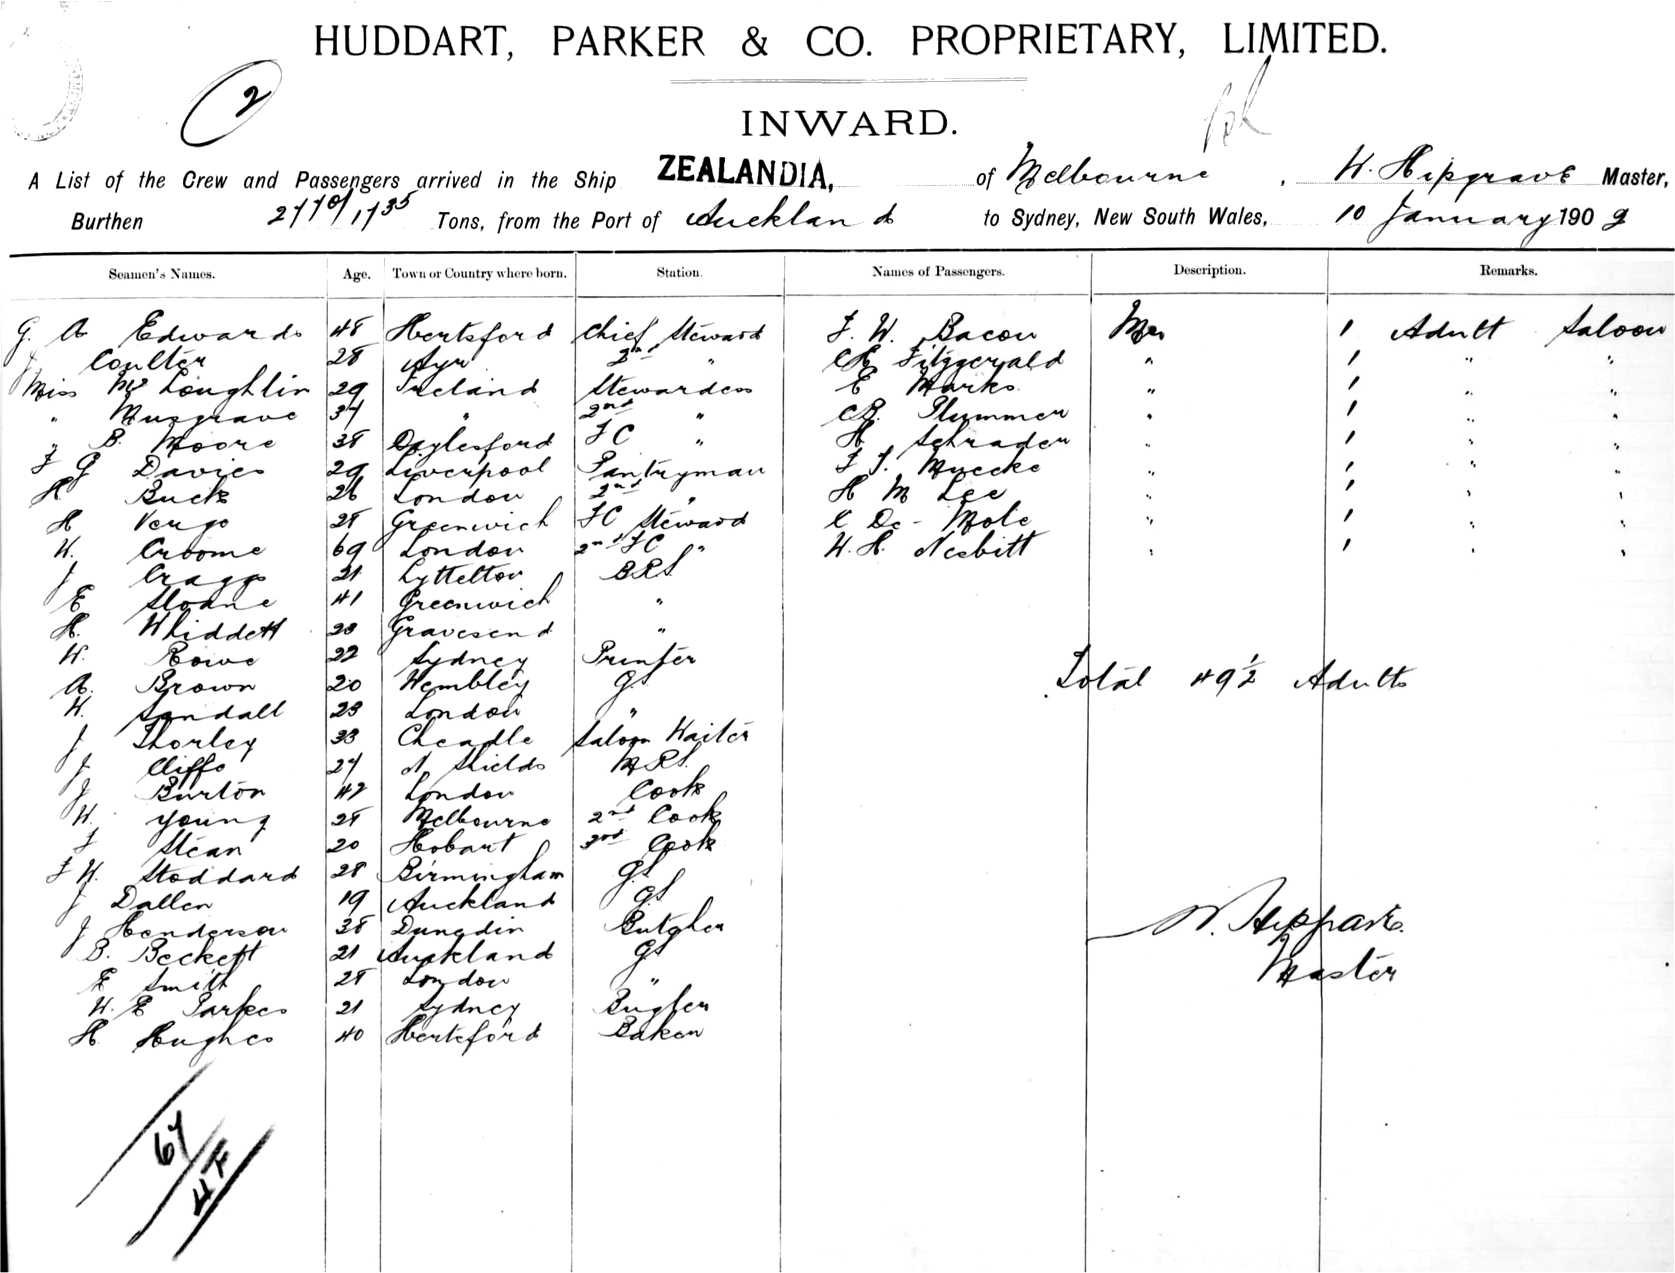 HUDDART, PARKER & CO. PROPRIETARY, LIMITED.
2
INWARD.
A List of the Crew and Passengers arrived in the Ship ZEALANDIA, of Melbourne, W. Hipgrave Master,
Burthen Tons, from the Port of Auckland to Sydney, New South Wales, 10 January 1909
Seamen's Names. Age. Town or Country where born. Station. Names of Passengers. Description. Remarks.
G. A Edwards 48 Hertsford Chief Steward F. W. Bacon Mr 1 Adult Saloon
J Coulter 28 Ayr 2nd " Fitzgerald " 1 " "
Miss Mc Loughlin 29 Ireland Stewardess E Marks " 1 " "
" Musgrave 34 " 2nd " Plummer " 1 " "
J B. Moore 38 Daylesford FC " H Schrader " 1 " "
F G Davies 29 Liverpool Pantryman F. J. Muecke " 1 " "
H Buck 26 London 2nd " H M Lee " 1 " "
H Vergo 28 Greenwich FC Steward C De-Mole " 1 " "
W. Croome 69 London 2nd FC " W. H. Nesbitt " 1 " "
J Cragg 21 Lyttelton BRS
E Sloane 41 Greenwich "
H. Whiddett 23 Gravesend "
W. Rowe 22 Sydney Printer
A. Brown 20 Wembley GS
W. Sandall 23 London "
J Thorley 33 Cheadle Saloon Waiter
J Cliffe 24 N Shields MRS.
J Burton 42 London Cook
W. Young 28 Melbourne 2nd Cook
F Stean 20 Hobart 3rd Cook
F W. Stoddard 28 Birmingham GS
J Dallen 19 Auckland GS
J Henderson 38 Dunedin Butcher
B. Beckett 21 Auckland GS
E Smith 28 London "
W. E Parkes 21 Sydney Bugler
H Hughes 40 Hertsford Baker
Total 49½ Adults
W. Hipgrave
Master
64
47